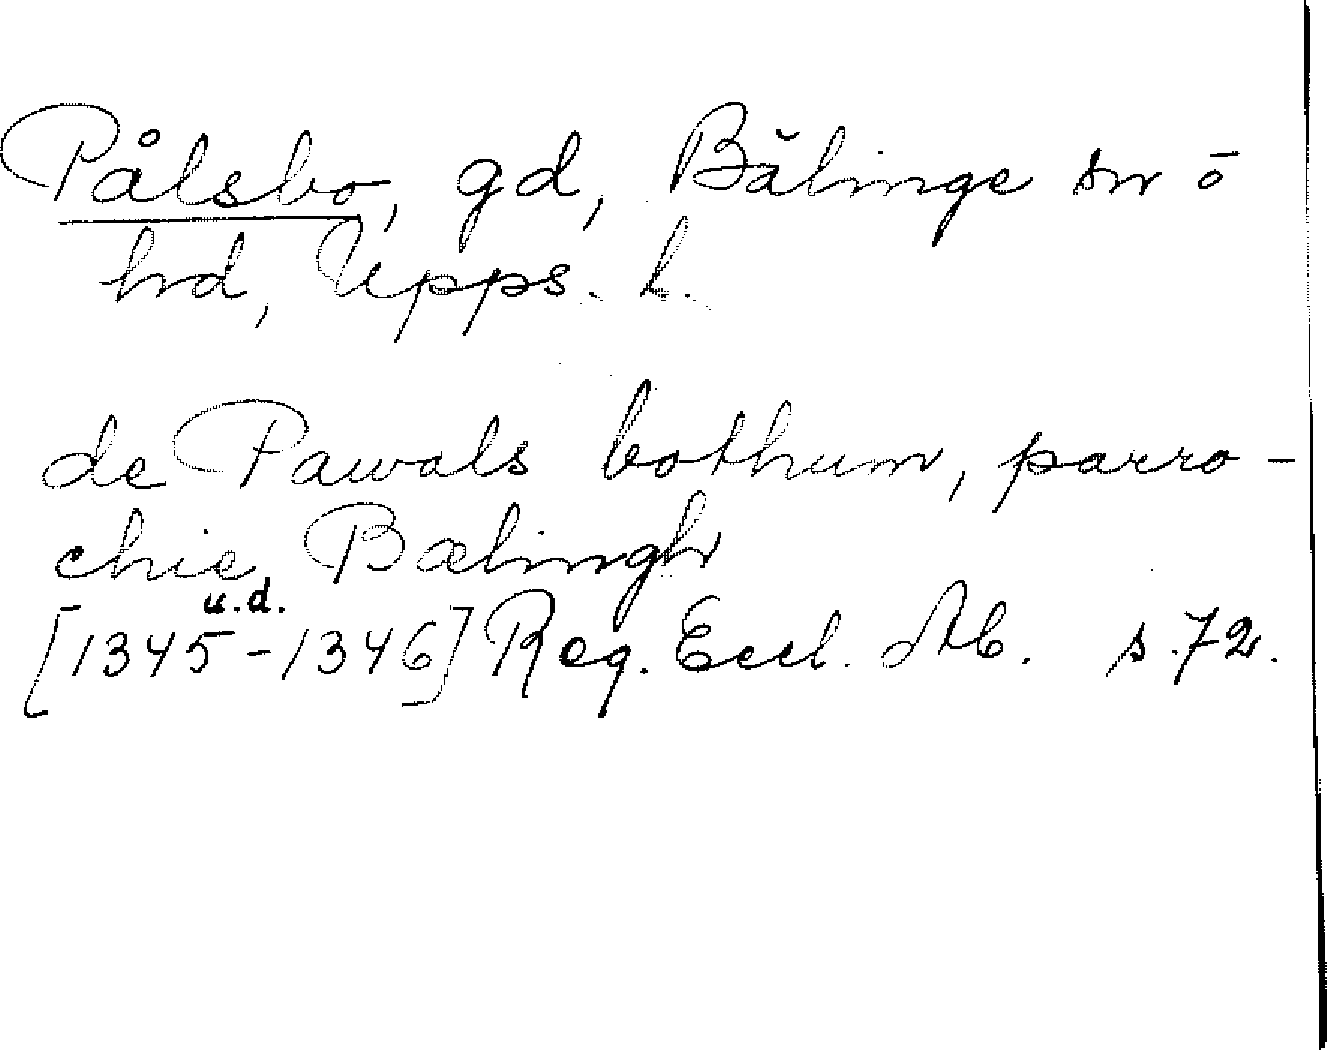 Pålsbo, gd, Bälinge sn ō
hd, Upps. l.
de Pawals bothum, parro-
chie Bælingh
u.d.
[1345-1346] Reg. Eccl. Ab. s. 72.